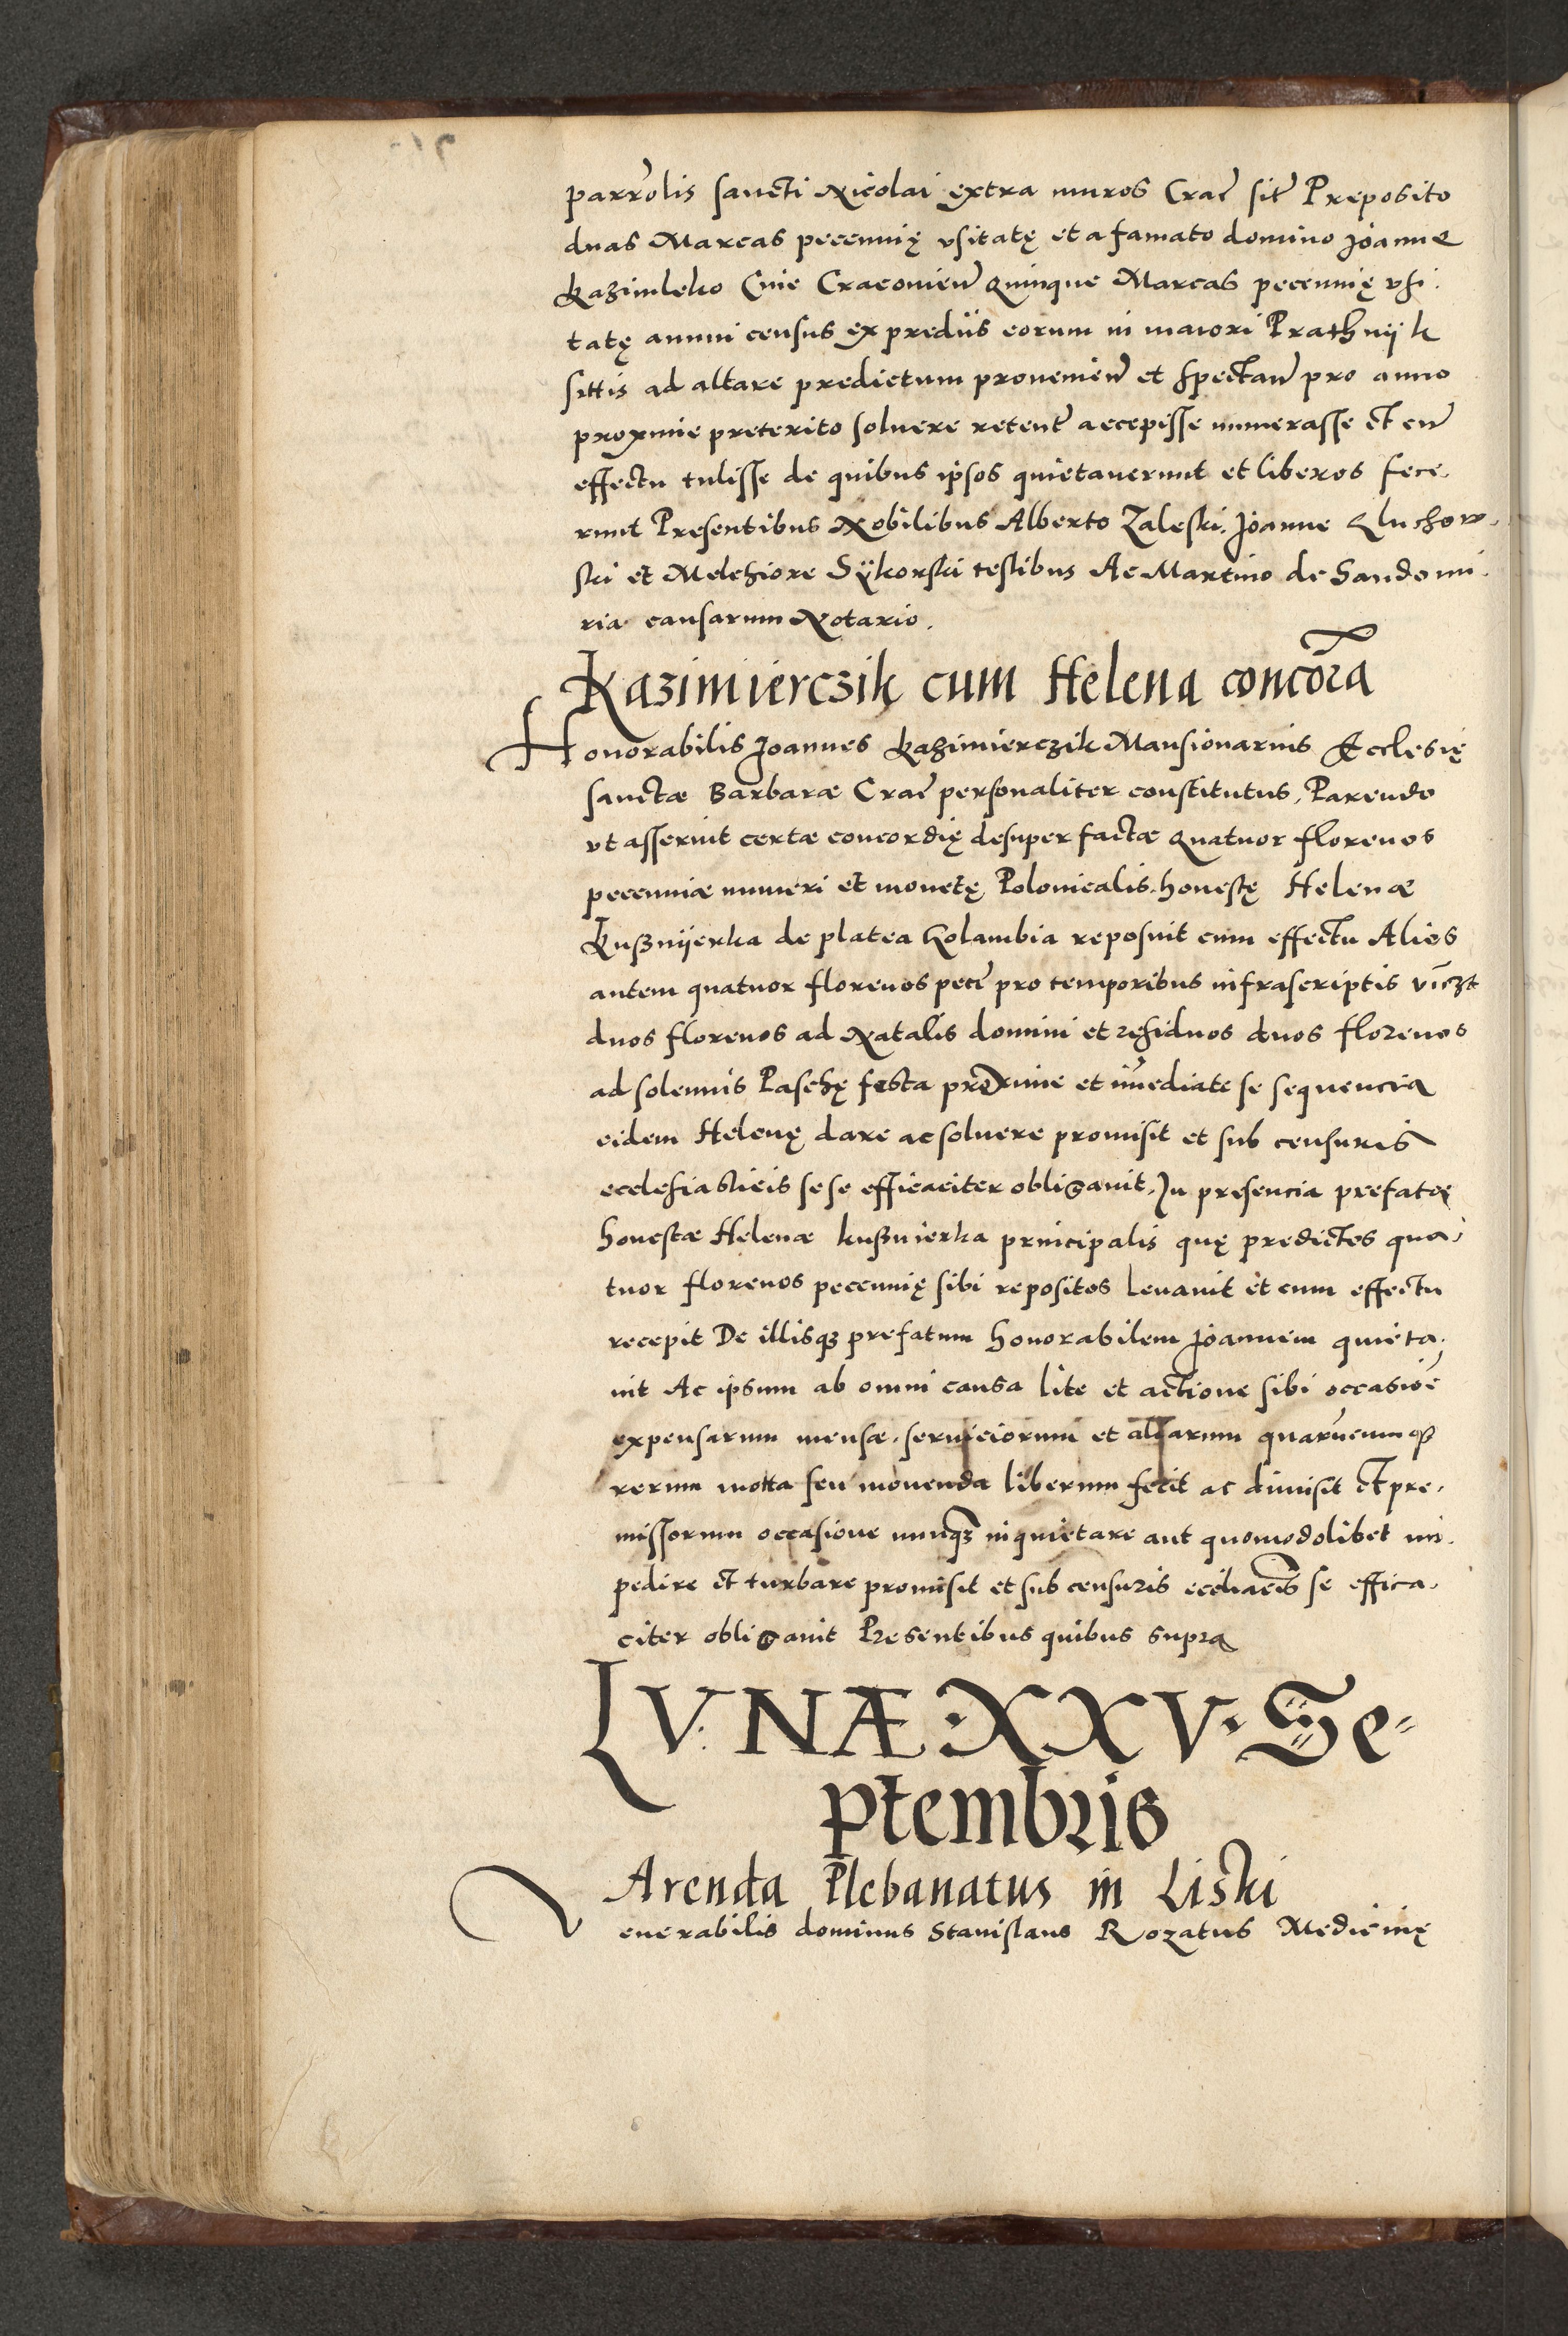 parrolis sancti Nicolai extra muros Crac sit Preposito
duas Marcas pecunnię vsitatę et a famato domino Joanne
Kazimleko Cive Cracovien Quinque Marcas pecunnię vsi.
tatę annui census ex prediis eorum in maiori Prathnijk
sittis ad altare predictum provenien et spectan pro anno
proxime preterito solvere retent accepisse numerasse et cu
effectu tulisse de quibus ipsos quietaverunt et liberos fece.
runt Presentibus Nobilibus Alberto Zaleski. Joanne Gluchow.
ski et Melchiore Sÿkorski testibus Ac Martino de Sandomi.
ria causarum Notario.
Kazimierczik cum Helena concora
Honorabilis Joannes Kazimierczik Mansionarius Ecclesię
sanctæ Barbaræ Crac personaliter constitutus, Parendo
vt asseruit certæ concordię desuper factæ Quatuor florenos
pecunniæ numeri et monetę Polonicalis. honestę Helenæ
Kusznijerka de platea Golambia reposuit cum effectu Alios
autem quatuor florenos pec pro temporibus infrascriptis viczt
duos florenos ad Natalis domini et residuos duos florenos
ad solennis Paschę festa proxime et imediate se sequencia
eidem Helenę dare ac solvere promisit et sub censuris
ecclesiasticis sese efficaciter obligavit. In presencia prefatæ
honestæ Helenæ kusznierka principalis quę predictos qua,
tuor florenos pecunnię sibi repositos levavit et cum effectu
recepit De illisqz prefatum honorabilem Joannem quieta.
vit Ac ipsum ab omni causa lite et actione sibi occasioe
expensarum mensæ. serviciorum et aliarum quarucumqz
rerum motta seu movenda liberum fecit ac dimisit Et pre.
missorum occasione nunqz inquietare aut quomodolibet im.
pedire et turbare promisit et sub censuris eccliacis se effica.
citer obligavit Presentibus quibus supra
LV. NÆ. XXV. Se-
ptembris
Arenda Plebanatus in Liski
Venerabilis dominus Stanislaus Rozatus Medicinę